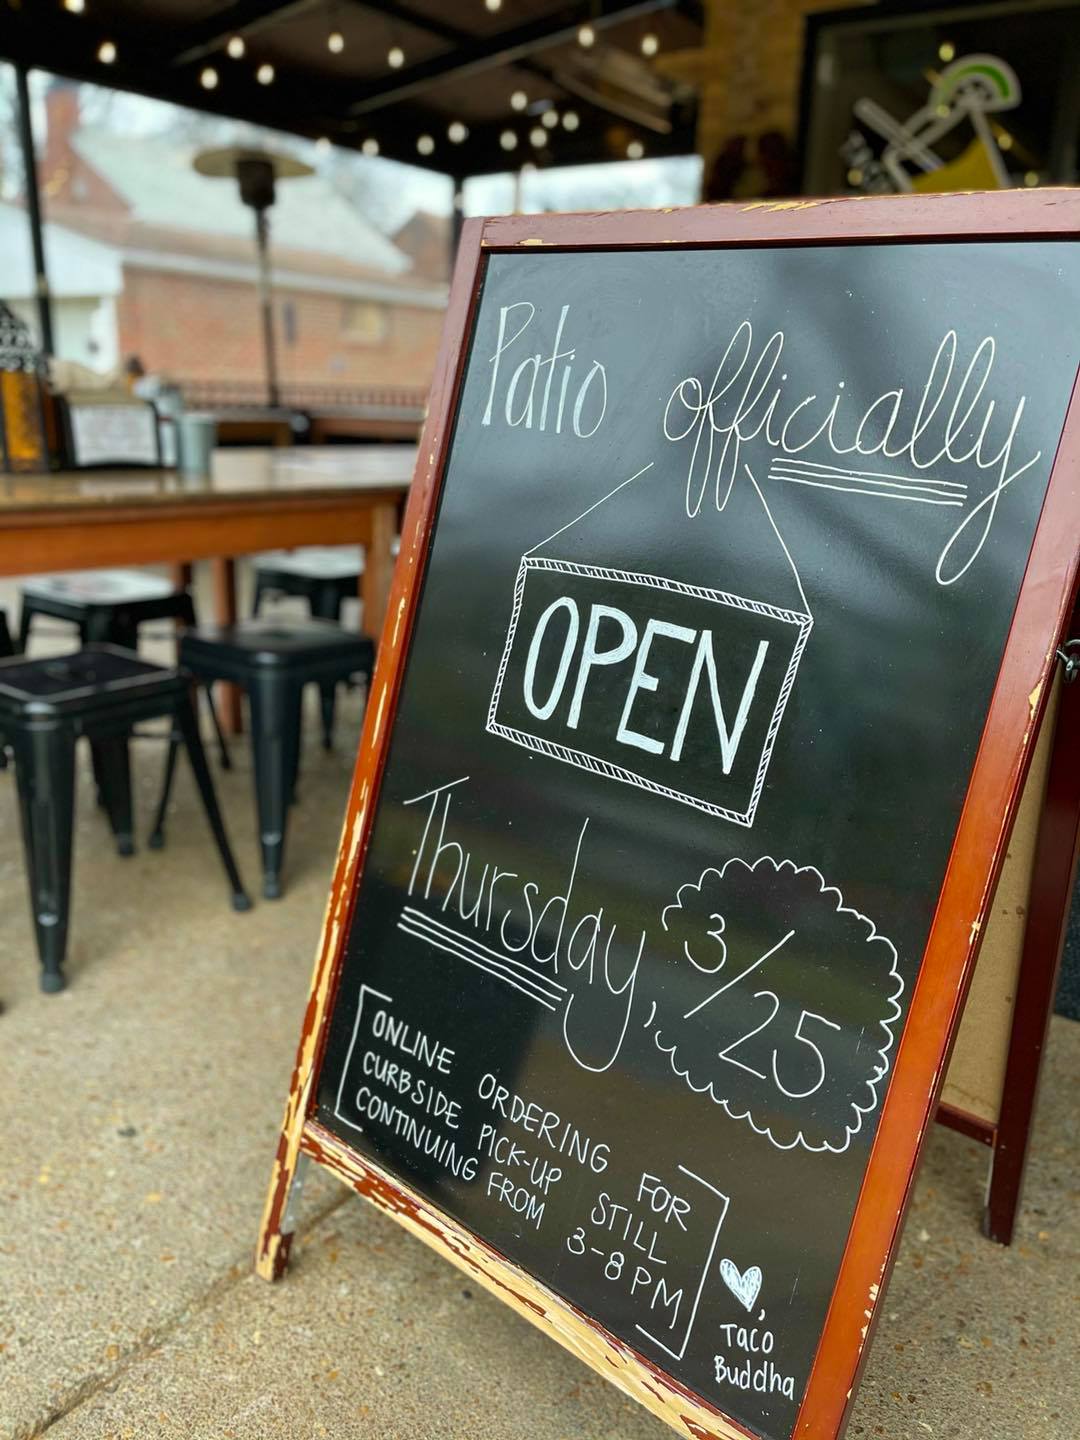 Patio officially
OPEN
Thursday, 3/25
ONLINE ORDERING FOR
CURBSIDE PICK-UP STILL
CONTINUING FROM 3-8PM
, Taco
Buddha